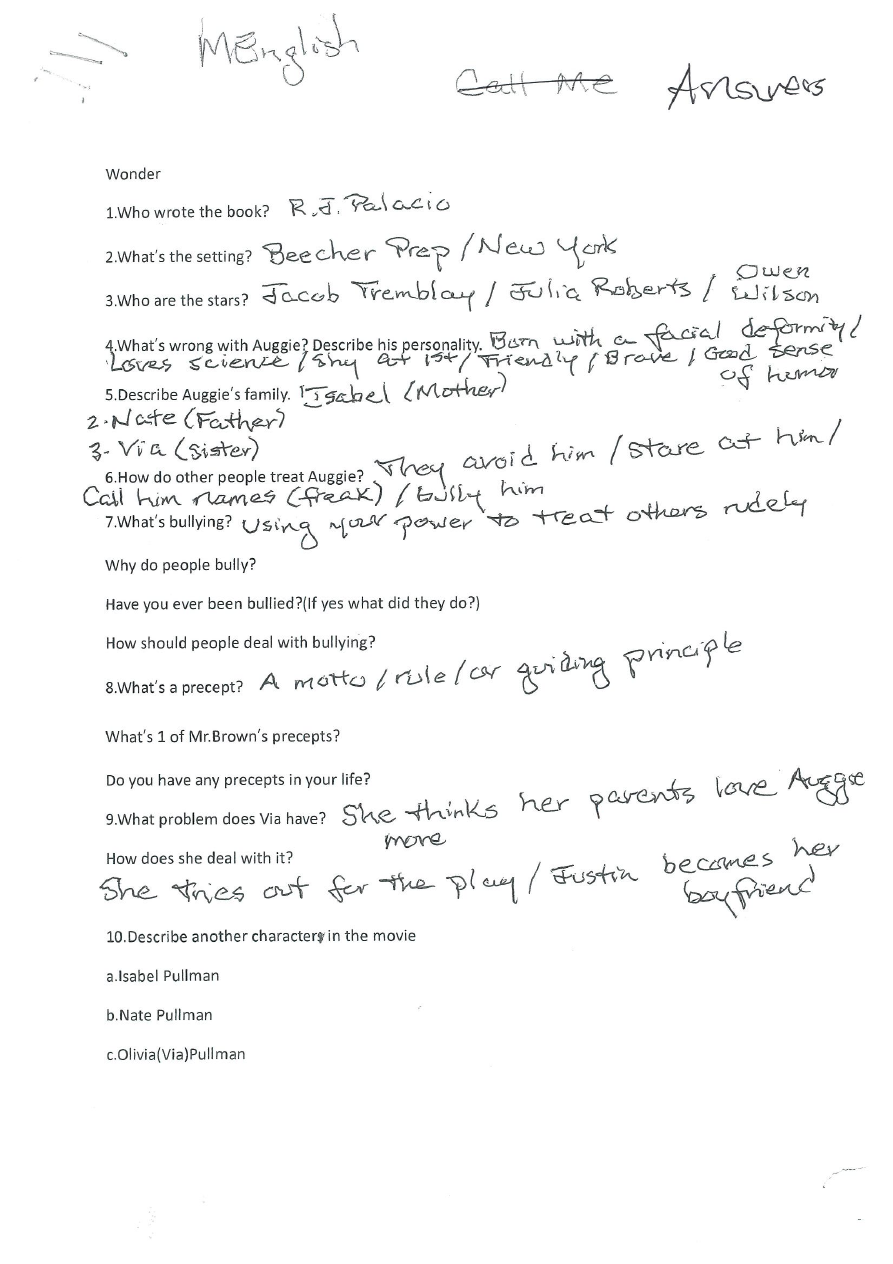 MEnglish
Call Me Answers
Wonder
1.Who wrote the book? R.J. Palacio
2.What's the setting? Beecher Prep / New York
3.Who are the stars? Jacob Tremblay / Julia Roberts / Owen
Wilson
4.What's wrong with Auggie? Describe his personality. Born with a facial deformity /
Loves science / Shy at 1st / Friendly / Brave / Good sense
of humor
5.Describe Auggie's family. 1-Isabel (Mother)
2-Nate (Father)
3-Via (Sister)
6.How do other people treat Auggie? They avoid him / stare at him /
Call him names (freak) / bully him
7.What's bullying? Using your power to treat others rudely
Why do people bully?
Have you ever been bullied?(If yes what did they do?)
How should people deal with bullying?
8.What's a precept? A motto / rule / or guiding principle
What's 1 of Mr.Brown's precepts?
Do you have any precepts in your life?
9.What problem does Via have? She thinks her parents love Auggie
more
How does she deal with it?
She tries out for the play / Justin becomes her
boyfriend
10.Describe another character in the movie
a.Isabel Pullman
b.Nate Pullman
c.Olivia(Via)Pullman